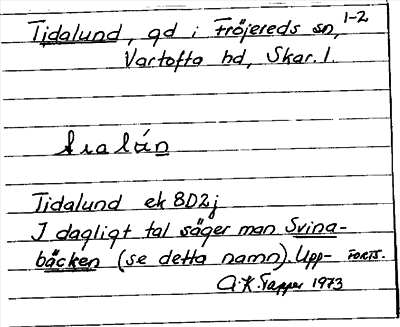 1-2
Tidalund, gd i Fröjereds sn,
Vartofta hd, Skar. l.
Tidalund ek 8D2j
I dagligt tal säger man Svina-
bäcken (se detta namn). Upp- FORTS.
A.K. Tapper 1973